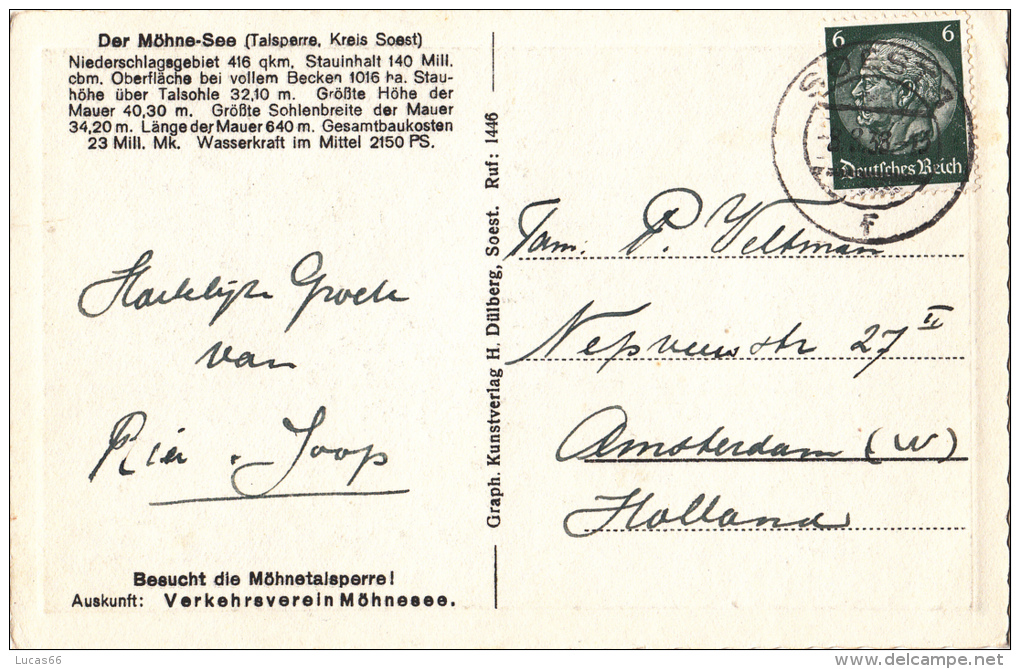 Der Möhne-See (Talsperre, Kreis Soest)
Niederschlagsgebiet 416 qkm, Stauinhalt 140 Mill.
cbm. Oberfläche bei vollem Becken 1016 ha. Stau-
höhe über Talsohle 32,10 m. Größte Höhe der
Mauer 40,30 m. Größte Sohlenbreite der Mauer
34,20 m. Länge der Mauer 640 m. Gesamtbaukosten
23 Mill. Mk. Wasserkraft im Mittel 2150 PS.
Hartelijke Groete
van
Rier . Joop
Besucht die Möhnetalsperre!
Auskunft: Verkehrsverein Möhnesee.
Graph. Kunstverlag H. Dülberg, Soest. Ruf: 1446
6 6
Deutsches Reich
F
Fam. P. Veltman
27 II
Amsterdam (W)
Holland
Lucas66
www.delcampe.net